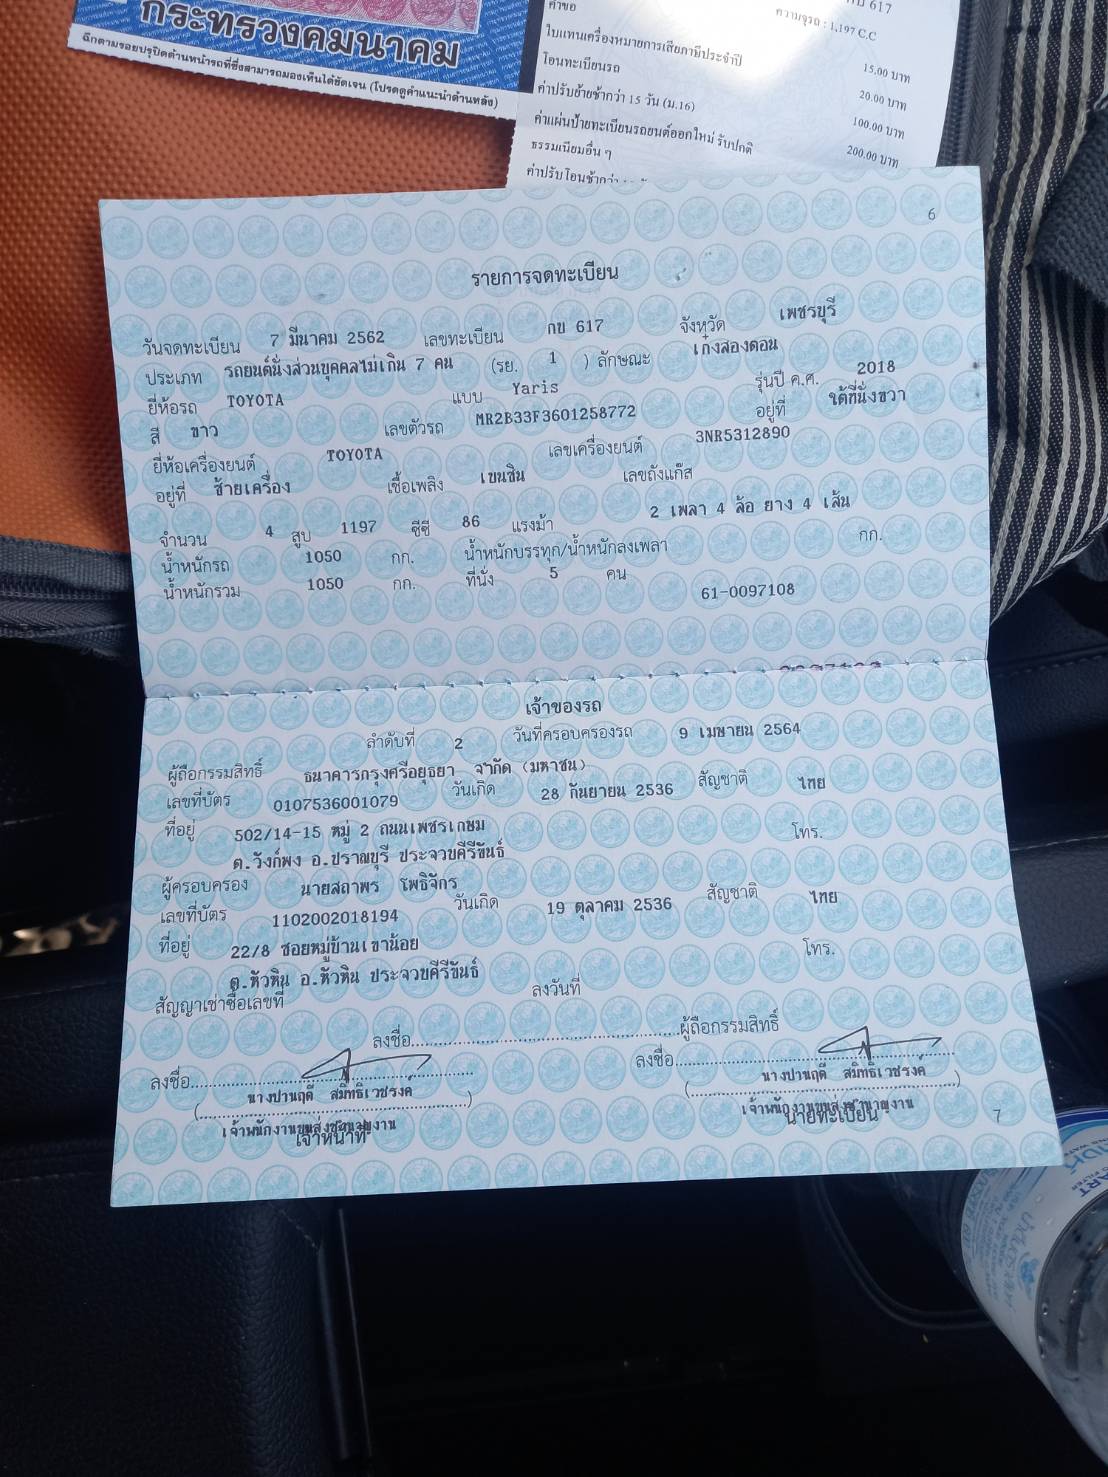 กระทรวงคมนาคม
ฉีกตามรอยปรุปิดด้านหน้ารถที่ซึ่งสามารถมองเห็นได้ชัดเจน (โปรดดูคำแนะนำด้านหลัง)
617
ความจุรถ : 1,197 C.C
คำขอ 15.00 บาท
ใบแทนเครื่องหมายการเสียภาษีประจำปี 20.00 บาท
โอนทะเบียนรถ 100.00 บาท
ค่าปรับย้ายช้ากว่า 15 วัน (ม.16) 200.00 บาท
ค่าแผ่นป้ายทะเบียนรถยนต์ออกใหม่ รับปกติ
ธรรมเนียมอื่น ๆ
ค่าปรับโอนช้ากว่า
6
รายการจดทะเบียน
วันจดทะเบียน 7 มีนาคม 2562 เลขทะเบียน กข 617 จังหวัด เพชรบุรี
ประเภท รถยนต์นั่งส่วนบุคคลไม่เกิน 7 คน (รย. 1 ) ลักษณะ เก๋งสองตอน
ยี่ห้อรถ TOYOTA แบบ Yaris รุ่นปี ค.ศ. 2018
สี ขาว เลขตัวรถ MR2B33F3601258772 อยู่ที่ ใต้ที่นั่งขวา
ยี่ห้อเครื่องยนต์ TOYOTA เลขเครื่องยนต์ 3NR5312890
อยู่ที่ ซ้ายเครื่อง เชื้อเพลิง เบนซิน เลขถังแก๊ส
จำนวน 4 สูบ 1197 ซีซี 86 แรงม้า 2 เพลา 4 ล้อ ยาง 4 เส้น
น้ำหนักรถ 1050 กก. น้ำหนักบรรทุก/น้ำหนักลงเพลา กก.
น้ำหนักรวม 1050 กก. ที่นั่ง 5 คน
61-0097108
เจ้าของรถ
ลำดับที่ 2 วันที่ครอบครองรถ 9 เมษายน 2564
ผู้ถือกรรมสิทธิ์ ธนาคารกรุงศรีอยุธยา จำกัด (มหาชน)
เลขที่บัตร 0107536001079 วันเกิด 28 กันยายน 2536 สัญชาติ ไทย
ที่อยู่ 502/14-15 หมู่ 2 ถนนเพชรเกษม โทร.
ต.วังก์พง อ.ปราณบุรี ประจวบคีรีขันธ์
ผู้ครอบครอง นายสถาพร โพธิจักร
เลขที่บัตร 1102002018194 วันเกิด 19 ตุลาคม 2536 สัญชาติ ไทย
ที่อยู่ 22/8 ซอยหมู่บ้านเขาน้อย โทร.
ต.หัวหิน อ.หัวหิน ประจวบคีรีขันธ์
สัญญาเช่าซื้อเลขที่ ลงวันที่
ลงชื่อ ผู้ถือกรรมสิทธิ์
ลงชื่อ ลงชื่อ
นางปานฤดี สมิทธิเวชรงค์ นางปานฤดี สมิทธิเวชรงค์
เจ้าพนักงานขนส่งชำนาญงาน เจ้าพนักงานขนส่งชำนาญงาน
เจ้าหน้าที่ นายทะเบียน
7